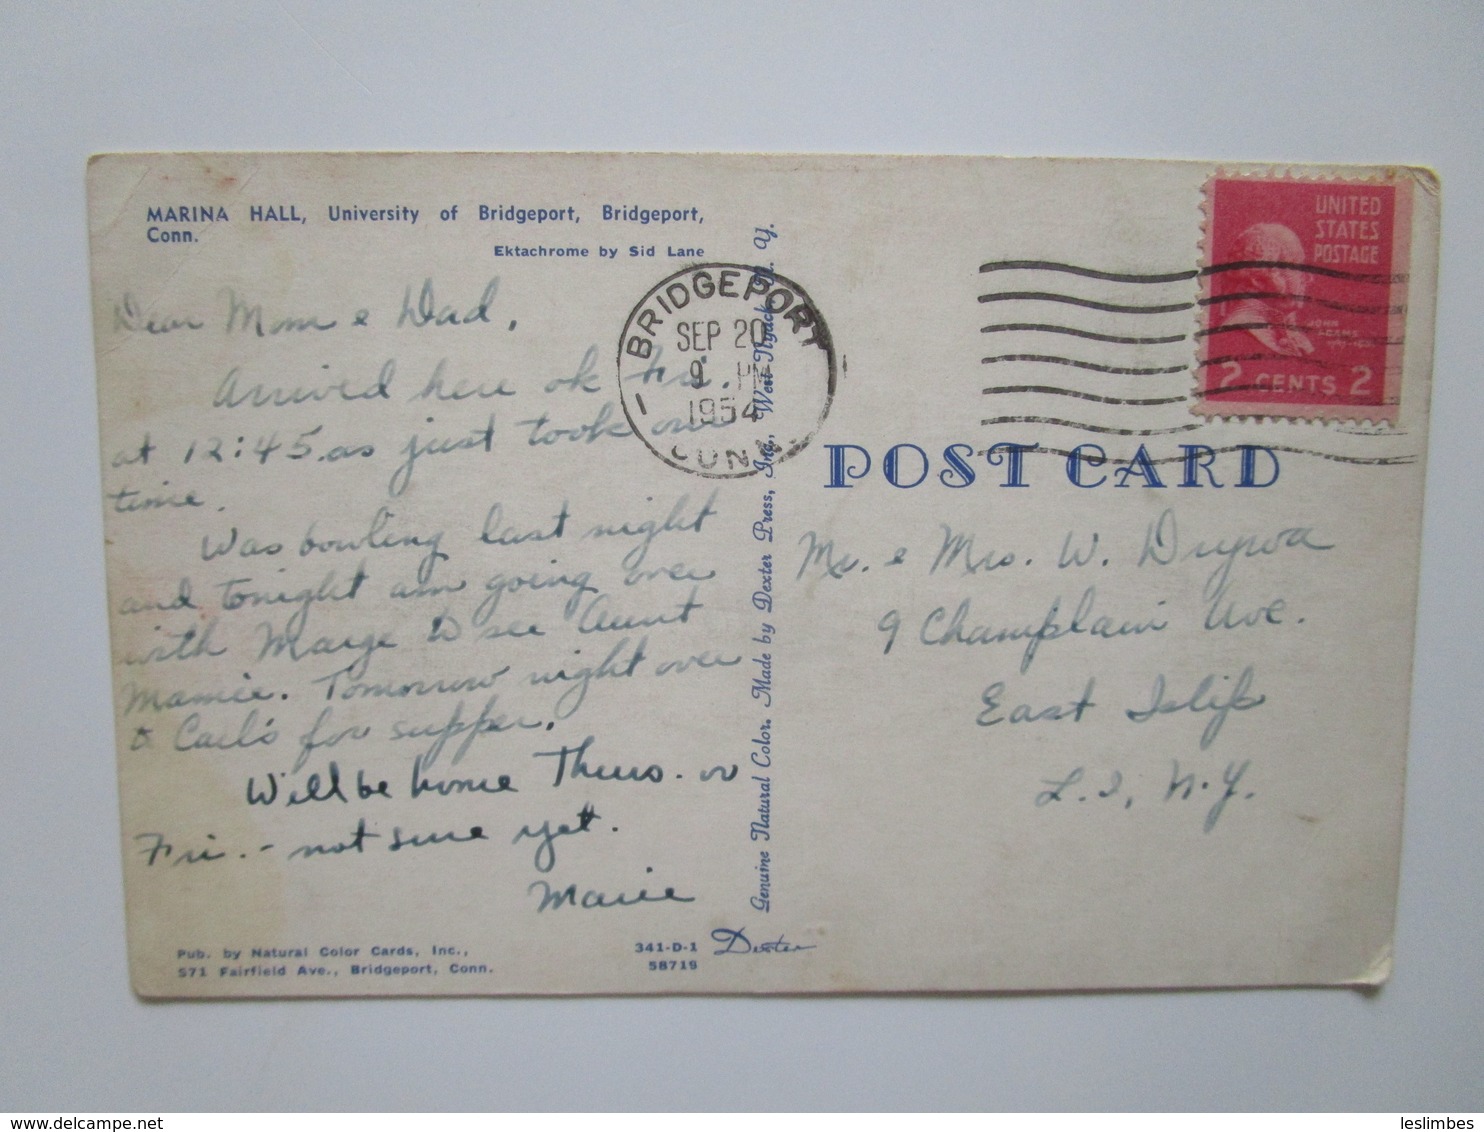 MARINA HALL, University of Bridgeport, Bridgeport,
Conn.
Ektachrome by Sid Lane
Dear Mom & Dad,
Arrived here ok Fri.
at 12:45 as just took one
time.
Was bowling last night
and tonight am going over
with Marge to see Aunt
Mamie. Tomorrow night over
to Carl's for supper.
Will be home Thurs. or
Fri. - not sure yet.
Marie
Pub. by Natural Color Cards, Inc.,
571 Fairfield Ave., Bridgeport, Conn.
341-D-1
58719
Dexter
Genuine Natural Color. Made by Dexter Press, Inc., West Nyack, N. Y.
BRIDGEPORT
SEP 20
9 PM
1954
CONN.
UNITED
STATES
POSTAGE
JOHN
ADAMS
2 CENTS 2
POST CARD
Mr. & Mrs. W.
9 Champlain Ave.
East Islip
L. I., N. Y.
leslimbes